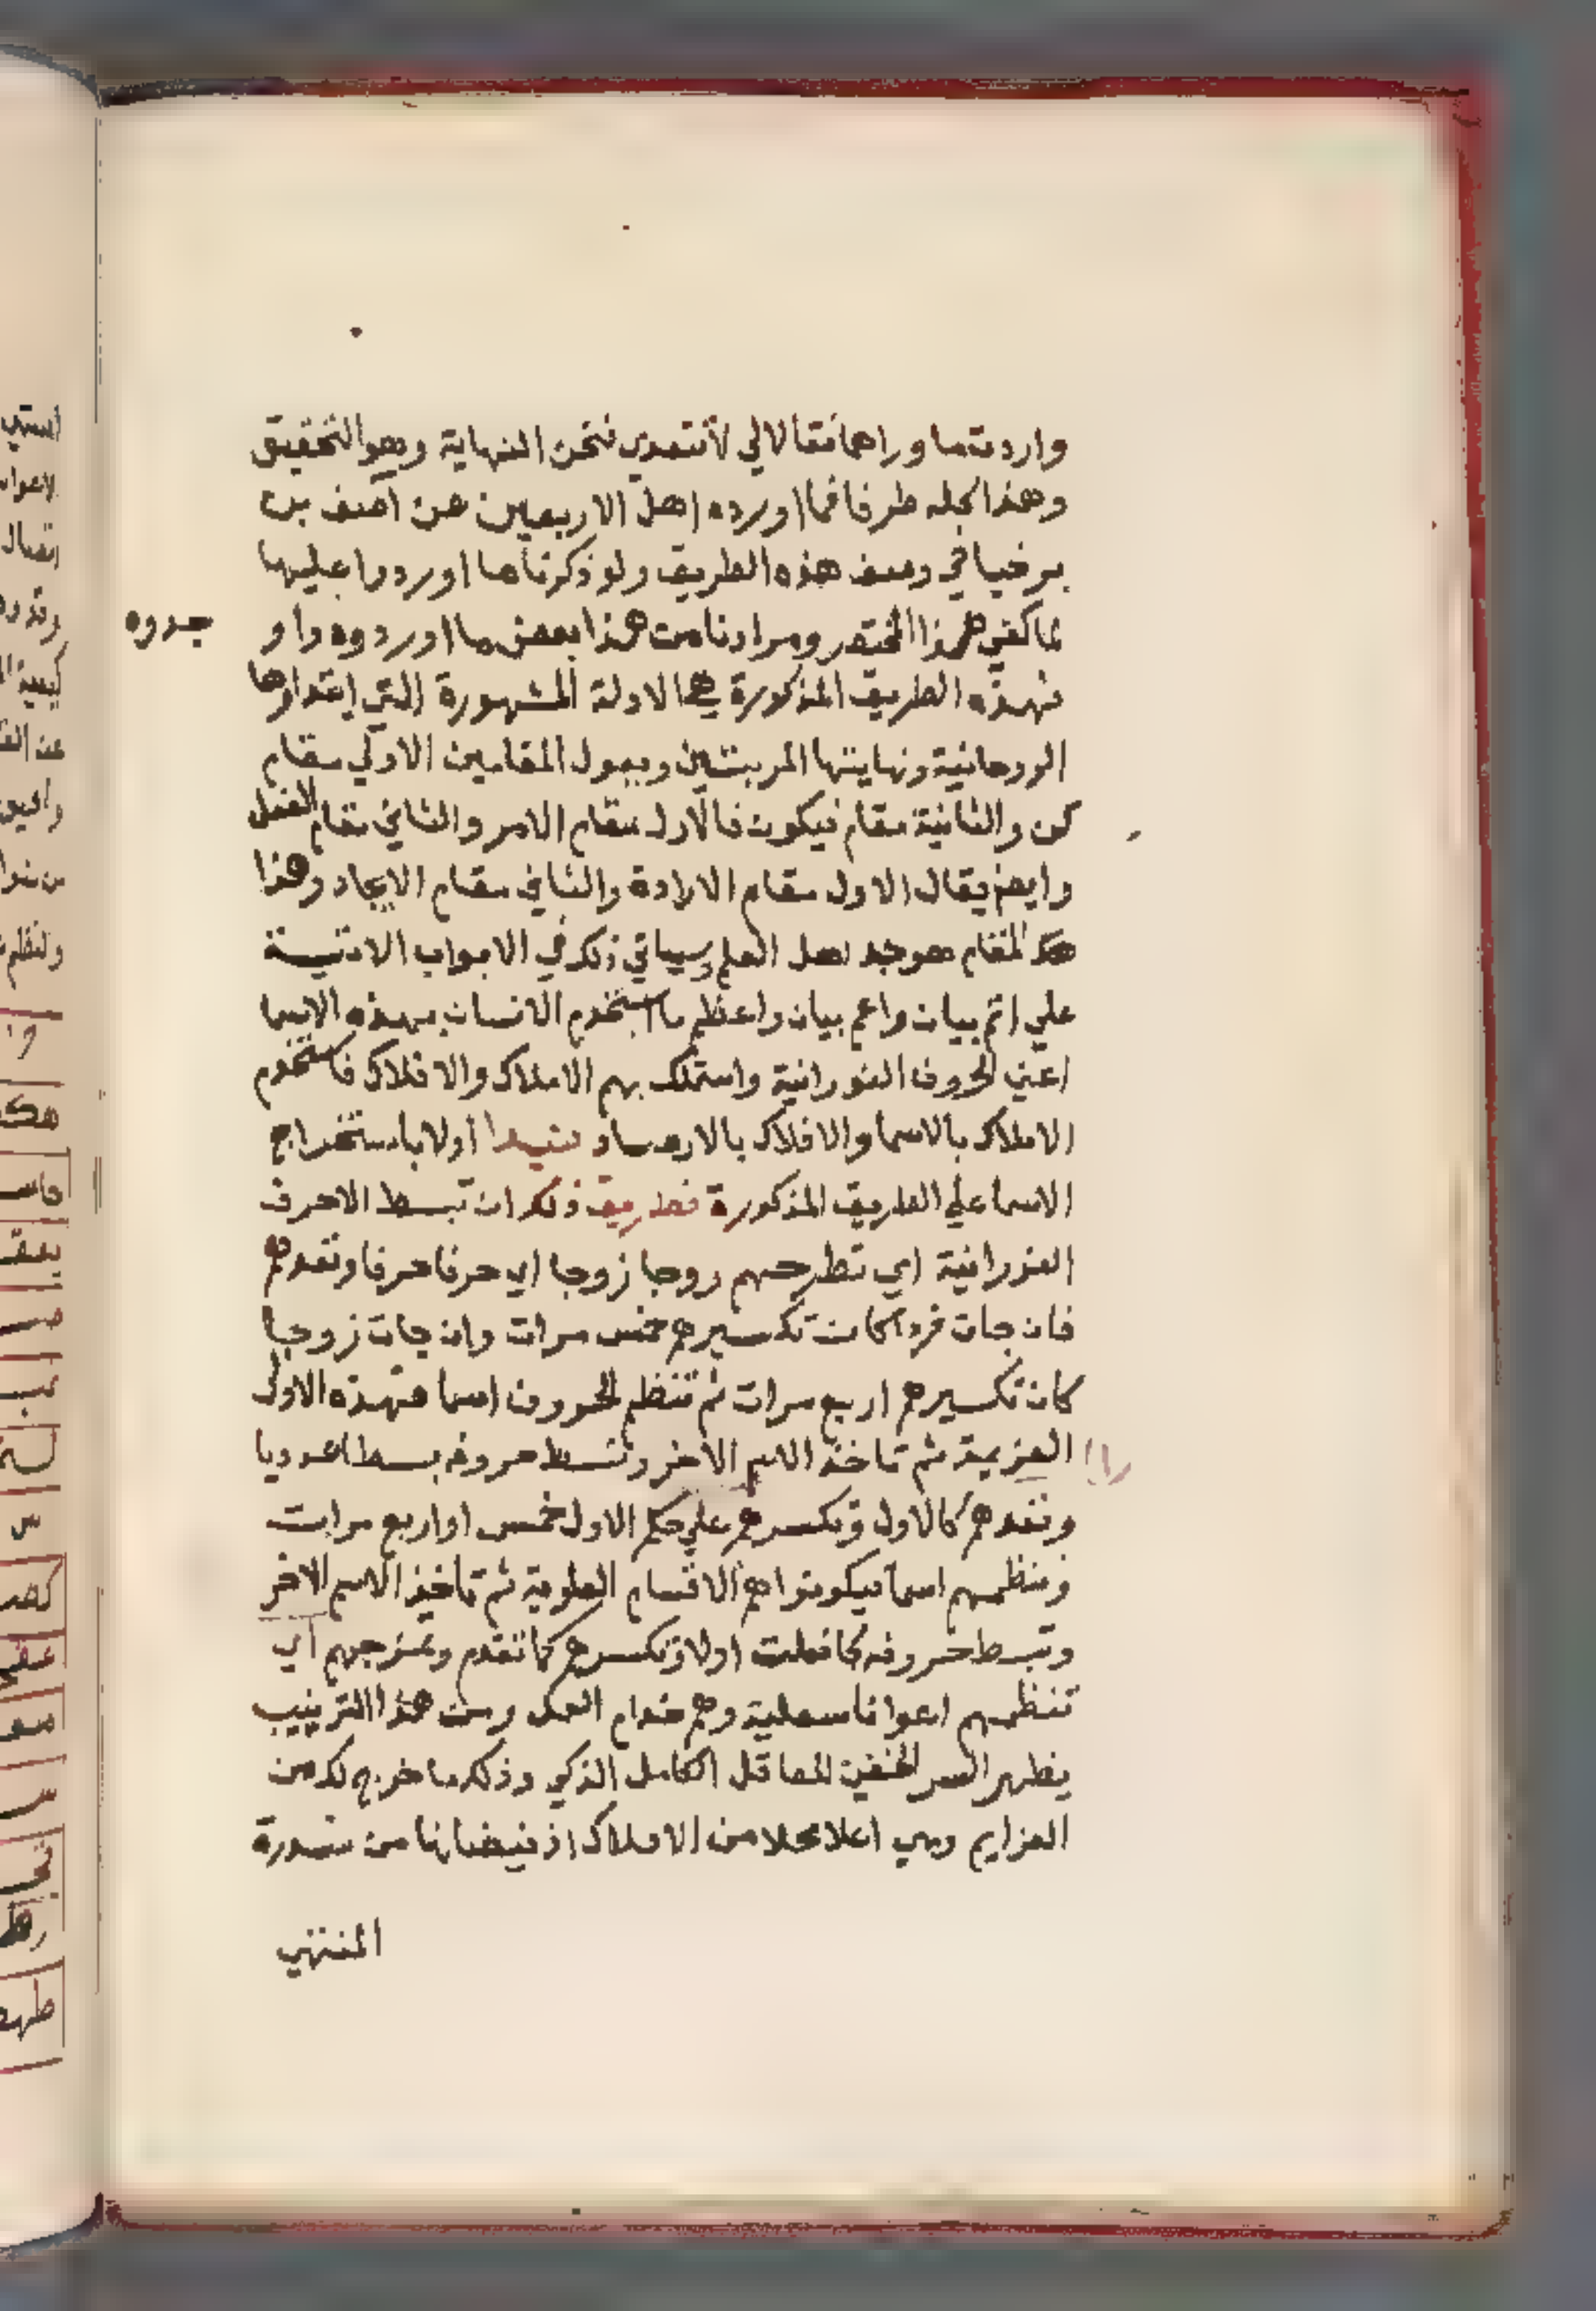 واردت ما وراهما فقالا لي لا تتعدي فنحن النهاية وهو التحقيق
وهذا الجله طرفا مما اورده اهل الاربعين عن اصف بن
برخيا في وصف هذه الطريق ولو ذكرنا ما اوردوا عليها
لما كفي هذا المختصر ومرادنا من هذا بعض ما اوردوه وا و
جدوه
فهذه الطريق المذكورة هي الادلة المشهورة التي ابتداوها
الروحانية ونهايتها المرتبتين وبيول المقامين الاولي مقام
كن والثانية مقام فيكون فالاول مقام الامر والثاني مقام الفعل
وايضا يقال الاول مقام الارادة والثاني مقام الايجاد وهذا
المقام هو جيد لاهل العلم وسياتي ذكره في الابواب الاتية
علي اتم بيان واعم بيان واعظم ما استخدم الانسان بهذه الاسما
اعني الحروف النورانية واستملك بهم الاملاك والافلاك فاستخدم
الاملاك بالاسما والافلاك بالارصاد اولا باستخراج
الاسما علي الطريق المذكورة فطريق ذلك ان تبسط الاحرف
النورانية اي تطرحهم زوجا زوجا اي حرفا حرفا وتعدهم
فان جات فردا كانت تكسيرهم خمس مرات وان جات زوجا
كان تكسيرهم اربع مرات ثم تنظم الحروف اسما فهذه الاول
العزيمة ثم تاخذ الاسم الاخر وتبسط حروفه بسطا عدديا
وتعدهم كالاول وتكسرهم علي حكم الاول خمس او اربع مرات
وتنظمهم اسما فيكونوا هم الاقسام العلوية ثم تاخذ الاسم الاخر
وتبسط حروفه كما فعلت اولا وتكسرهم كما تقدم وتمزجهم اي
تنظمهم اعوانا سفلية وهم خدام العمل ومن هذا الترتيب
يظهر السر الخفي للعاقل الكامل الذكي وذلك ما خرج لك من
العزايم وهي اعلا محلا من الاملاك اذ فيضانها من سدرة
المنتهي